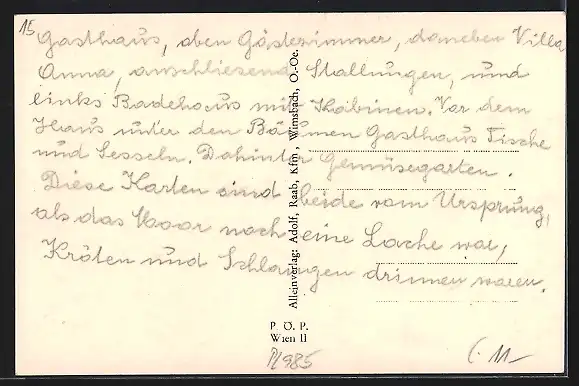 15
Gasthaus, oben Gästezimmer, daneben Villa
Anna, anschliesend Stallungen, und
links Badehaus mit Kabinen. Vor dem
Haus unter den Bäumen Gasthaus Tische
und Sesseln. Dahinter Gemüsegarten.
Diese Karten sind beide vom Ursprung,
als das Moor noch eine Lache war,
Kröten und Schlangen drinnen waren.
Alleinverlag: Adolf, Raab, Kfm, Wimsbach, O.-Oe.
P. Ö. P.
Wien II